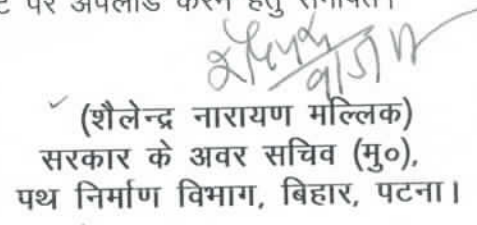 पर अपलोड करने हेतु
(शैलेन्द्र नारायण मल्लिक)
सरकार के अवर सचिव (मु०),
पथ निर्माण विभाग, बिहार, पटना।